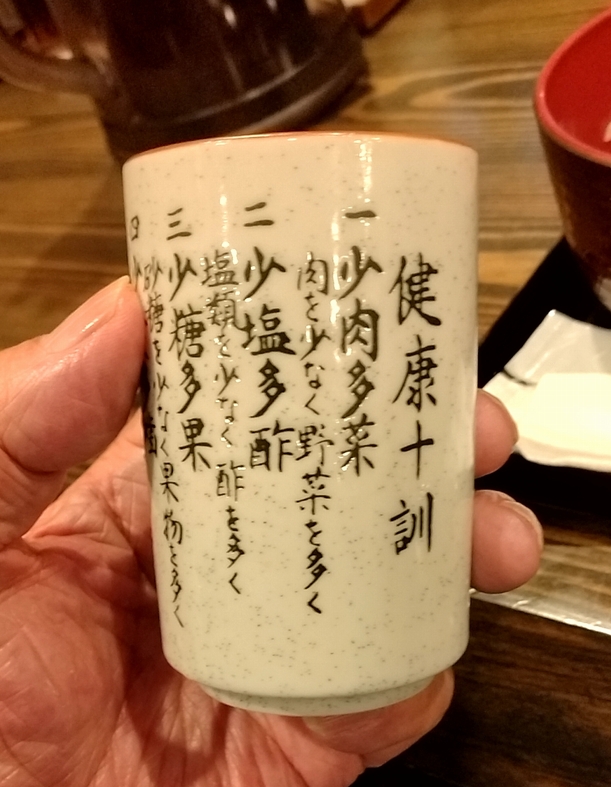 健康十訓
一 少肉多菜
肉を少なく野菜を多く
二 少塩多酢
塩類を少なく酢を多く
三 少糖多果
砂糖を少なく果物を多く
四 少